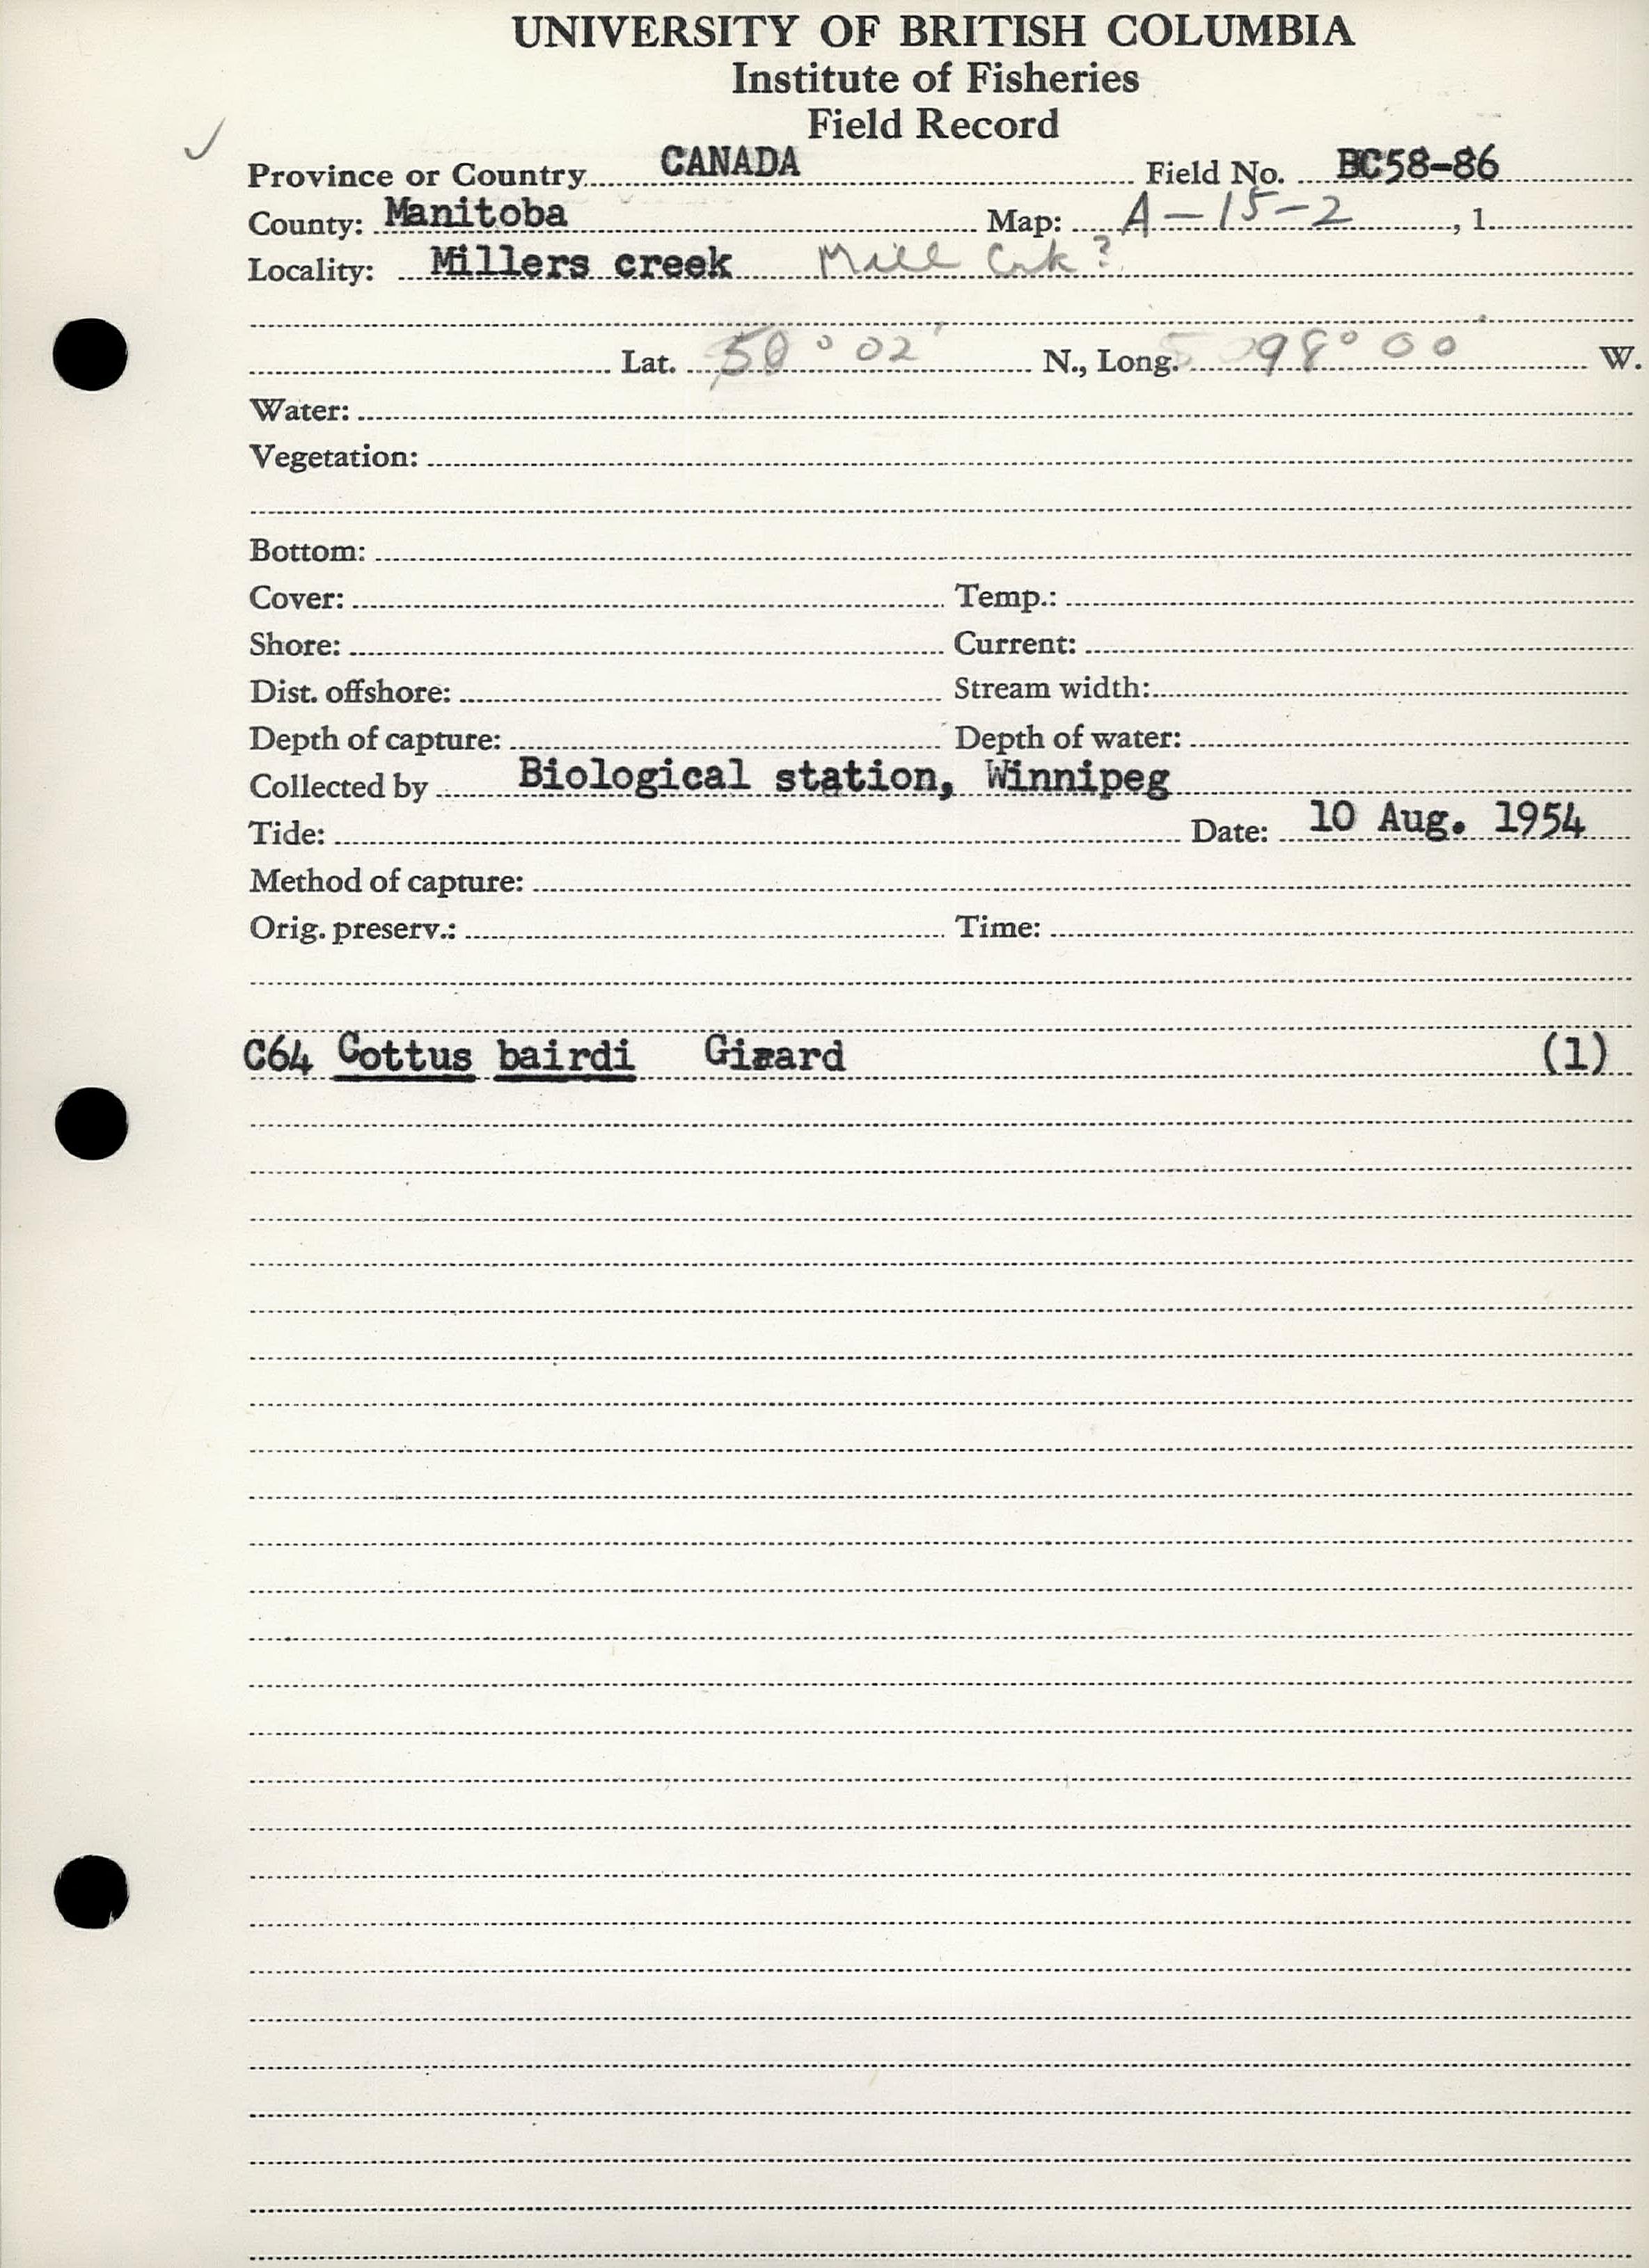 UNIVERSITY OF BRITISH COLUMBIA
Institute of Fisheries
Field Record
✓
Province or Country CANADA Field No. BC58-86
County: Manitoba Map: A-15-2, 1
Locality: Millers creek Mill Crk?
Lat. 50° 02' N., Long. 98° 00 W.
Water:
Vegetation:
Bottom:
Cover: Temp.:
Shore: Current:
Dist. offshore: Stream width:
Depth of capture: Depth of water:
Collected by Biological station, Winnipeg
Tide: Date: 10 Aug. 1954
Method of capture:
Orig. preserv.: Time:
C64 Cottus bairdi Girard (1)